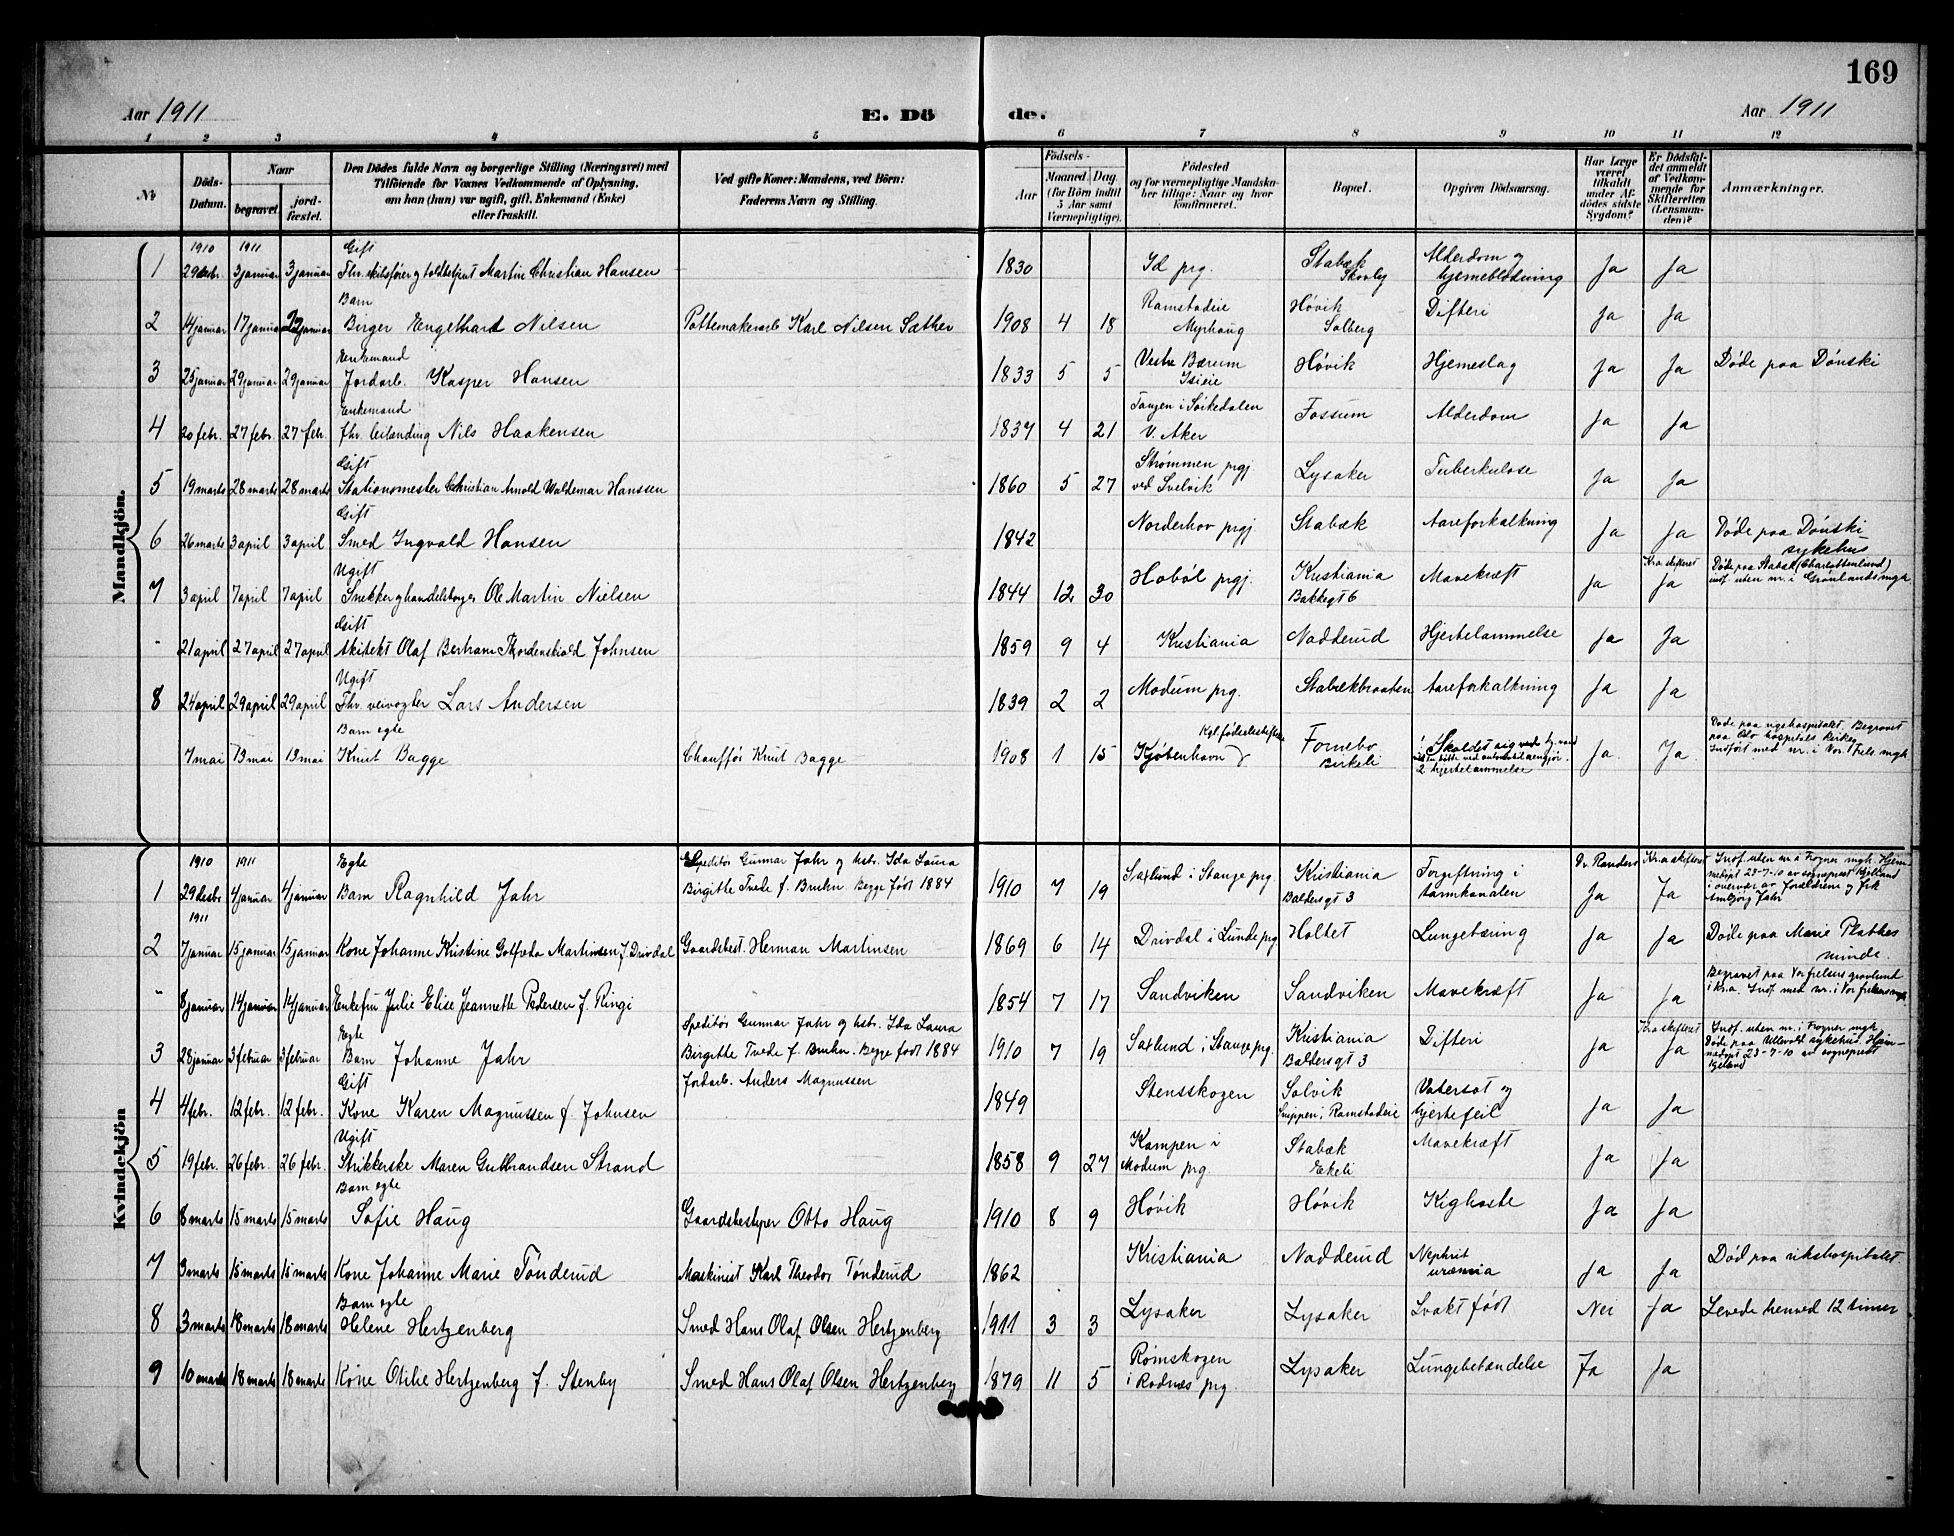 169
Aar 1911
E. Dö
de.
Aar 1911
1 2 3 4 5 6 7 8 9 10 11 12
No
Döds-
Datum.
Naar
begravet.
jord-
fæstet.
Den Dödes fulde Navn og borgerlige Stilling (Næringsvei) med
Tilföiende for Voxnes Vedkommende af Oplysning,
om han (hun) var ugift, gift, Enkemand (Enke)
eller fraskilt.
Ved gifte Koner: Mandens, ved Börn:
Faderens Navn og Stilling.
Födsels-
Aar
Maaned. Dag.
(for Börn indtil
5 Aar samt
Værnepligtige).
Födested
og for værnepligtige Mandska-
ber tillige: Naar og hvor
konfirmeret.
Bopæl.
Opgiven Dödsaarsag.
Har Læge
været
tilkaldt
under Af-
dödes sidste
Sygdom?
Er Dödsfal-
det anmeldt
af Vedkom-
mende for
Skifteretten
(Lensman-
den)?
Anmærkninger.
Mandkjön.
1910 1911 Gift
1 29 desbr. 3 januar 3 januar Fhv. skibsfører og toldbetjent Martin Christian Hansen 1830 Id prg. Stabæk Alderdom og Ja Ja
Skovly hjerneblødning
Barn
2 14 januar 17 januar 22 januar Birger Engelhard Nilsen Pottemakerarb. Karl Nilsen Sæther 1908 4 18 Ramstadeie Høvik Difteri Ja Ja
Myrhaug Solberg
Enkemand
3 25 januar 29 januar 29 januar Jordarb. Kasper Hansen 1833 5 5 Vestre Bærum Høvik Hjerneslag Ja Ja Døde paa Dønski
Isieie
Enkemand
4 20 febr. 27 febr. 27 febr. fhv. leilænding Nils Haakensen 1839 4 21 Tangen i Sørkedalen Fossum Alderdom Ja Ja
V. Aker
Gift
5 19 marts 28 marts 28 marts Stationsmester Christian Arnold Waldemar Hanssen 1860 5 27 Strømmen prgj. Lysaker Tuberkulose Ja Ja
ved Svelvik
Gift
6 26 marts 3 april 3 april Smed Ingvald Hansen 1842 Norderhov prgj. Stabæk Aareforkalkning Ja Ja Døde paa Dønski
sykehus
Ugift
7 3 april 7 april 7 april Snekker og handelsborger Ole Martin Nielsen 1844 12 30 Hobøl prgj. Kristiania Mavekræft Ja Kra. skifteret Ja Døde paa Stabæk (Charlottenlund)
Bakkegt 6 indf. uten nr. i Grønlands mgh
Gift
" 21 april 27 april 27 april Arkitekt Olaf Bertram Thordenskiold Johnsen 1859 9 4 Kristiania Nadderud Hjertelammelse Ja Ja
Ugift
8 24 april 29 april 29 april Fhv. veivogter Lars Andersen 1839 2 2 Modum prg. Stabækbraaten Aareforkalkning Ja Ja
Barn egte
7 mai 13 mai 13 mai Knut Bagge Chauffør Knut Bagge 1908 1 15 Kgl. fødselsstiftelse Kjøbenhavn Fornebo Birkeli 1 Skoldet sig ved
2 hjertelammelse Ja Ja Døde paa rigshospitalet. Begravet
paa Oslo hospitals kirkeg.
Indført med nr. i Vor Frels. mgh
Kvindekjön
1910 1911 Egte
1 29 desbr. 4 januar 4 januar Barn Ragnhild Jahr Speditør Gunnar Jahr og hstr. Ida Laura
Birgitte Tvede f. Bruhn. Begge født 1884 1910 7 19 Saxlund i Stange prg. Kristiania Baldersgt 3 Forgiftning i tarmkanalen Dr. Randers Ja Kr.a skifteret Ja Indf. uten nr. i Frogner mgh. Hjem-
medøpt 23-7-10 av sogneprest Kjelland
i overvær av forældrene og frk
Ambjørg Jahr
1911
2 7 januar 15 januar 15 januar Kone Johanne Kristine Gotfreda Martinsen f. Drivdal Gaardsbest. Herman Martinsen 1869 6 14 Drivdal i Lunde prg Holtet Lungetæring Ja Ja Døde paa Marie Plathes
minde.
" 8 januar 14 januar 14 januar Enkefru Julie Elise Jeannette Pedersen f. Ringi 1854 7 17 Sandviken Sandviken Mavekræft Ja Ja Begravet paa Vor frelsers gravlund
i Kr.a. Indf. med nr. i Vor frelsers mgh
Egte
3 28 januar 3 februar 3 februar Barn Johanne Jahr Speditør Gunnar Jahr og hstr. Ida Laura
Birgitte Tvede f. Bruhn. Begge født 1884 1910 7 19 Saxlund i Stange prg. Kristiania Baldersgt 3 Difteri Ja Kr.a skifteret Ja Indf. uten nr. i Frogner mgh
Døde paa Ullevold sykehus. Hjem-
medøpt 23-7-10 av sogneprest
Kjelland
Gift
4 4 febr. 12 febr. 12 febr. Kone Karen Magnussen f. Johnsen Jordarb. Anders Magnussen 1849 Stensskogen Solvik Vatersot og Ja Ja
Snippen i Ramstadeie hjertefeil
Ugift
5 19 febr. 26 febr. 26 febr. Strikkerske Maren Gulbrandsen Strand 1858 9 27 Kampen i Stabæk Mavekræft Ja Ja
Modum prg. Ekeli
Barn egte
6 8 marts 15 marts 15 marts Sofie Haug Gaardsbestyrer Otto Haug 1910 8 9 Høvik Høvik Kighoste Ja Ja
7 3 marts 15 marts 15 marts Kone Johanne Marie Tønderud Maskinist Karl Theodor Tønderud 1862 Kristiania Nadderud Nephrit Ja Ja Død paa rikshospitalet.
uræmia
Barn egte
8 3 marts 18 marts 18 marts Helene Hertzenberg Smed Hans Olaf Olsen Hertzenberg 1911 3 3 Lysaker Lysaker Svakt født Nei Ja Levede henved 12 timer
9 10 marts 18 marts 18 marts Kone Otilie Hertzenberg f. Stenby Smed Hans Olaf Olsen Hertzenberg 1879 11 5 Rømskogen Lysaker Lungebetændelse Ja Ja
i Rødnæs prg.